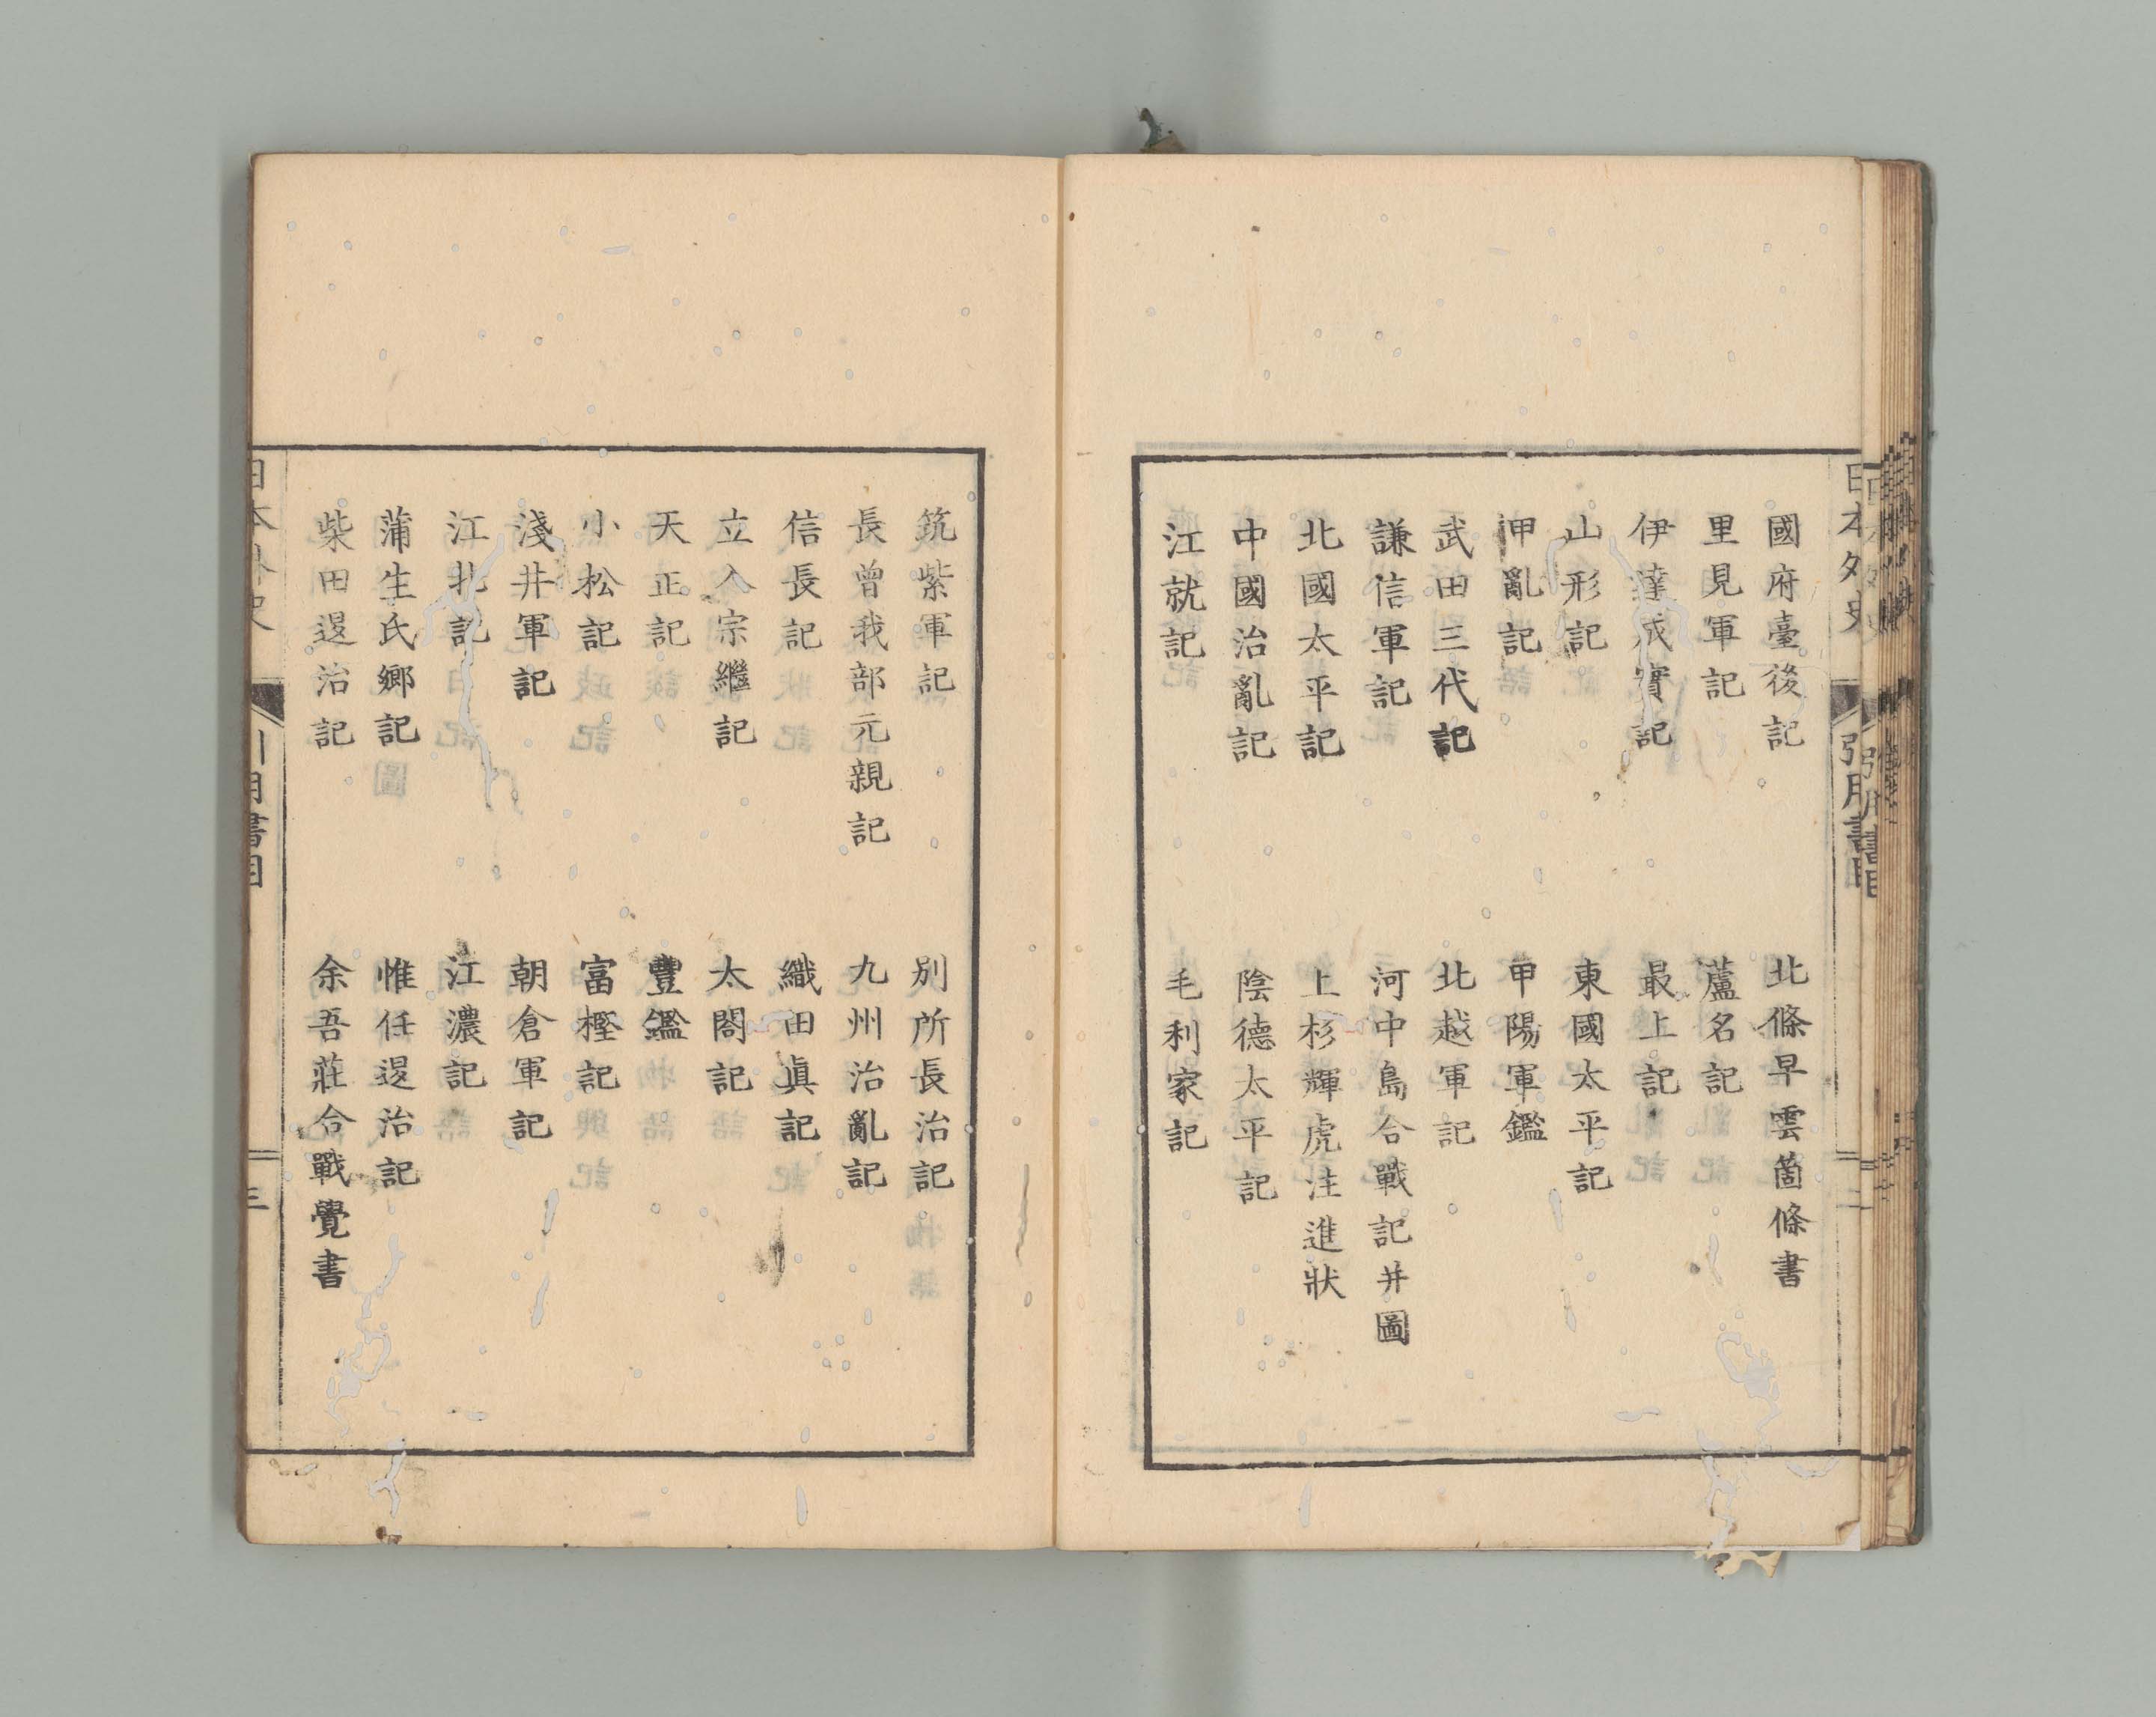 國府臺後記
北條早雲箇條書
里見軍記
蘆名記
伊達成實記
最上記
山形記
東國太平記
甲亂記
甲陽軍鑑
武田三代記
北越軍記
謙信軍記
河中島合戰記并圖
北國太平記
上杉輝虎注進狀
中國治亂記
陰德太平記
江就記
毛利家記
筑紫軍記
別所長治記
長曾我部元親記
九州治亂記
信長記
織田眞記
立入宗繼記
太閤記
天正記
豐鑑
小松記
富樫記
淺井軍記
朝倉軍記
江北記
江濃記
蒲生氏鄉記
惟任退治記
柴田退治記
余吾莊合戰覺書
日本外史
引用書目
三